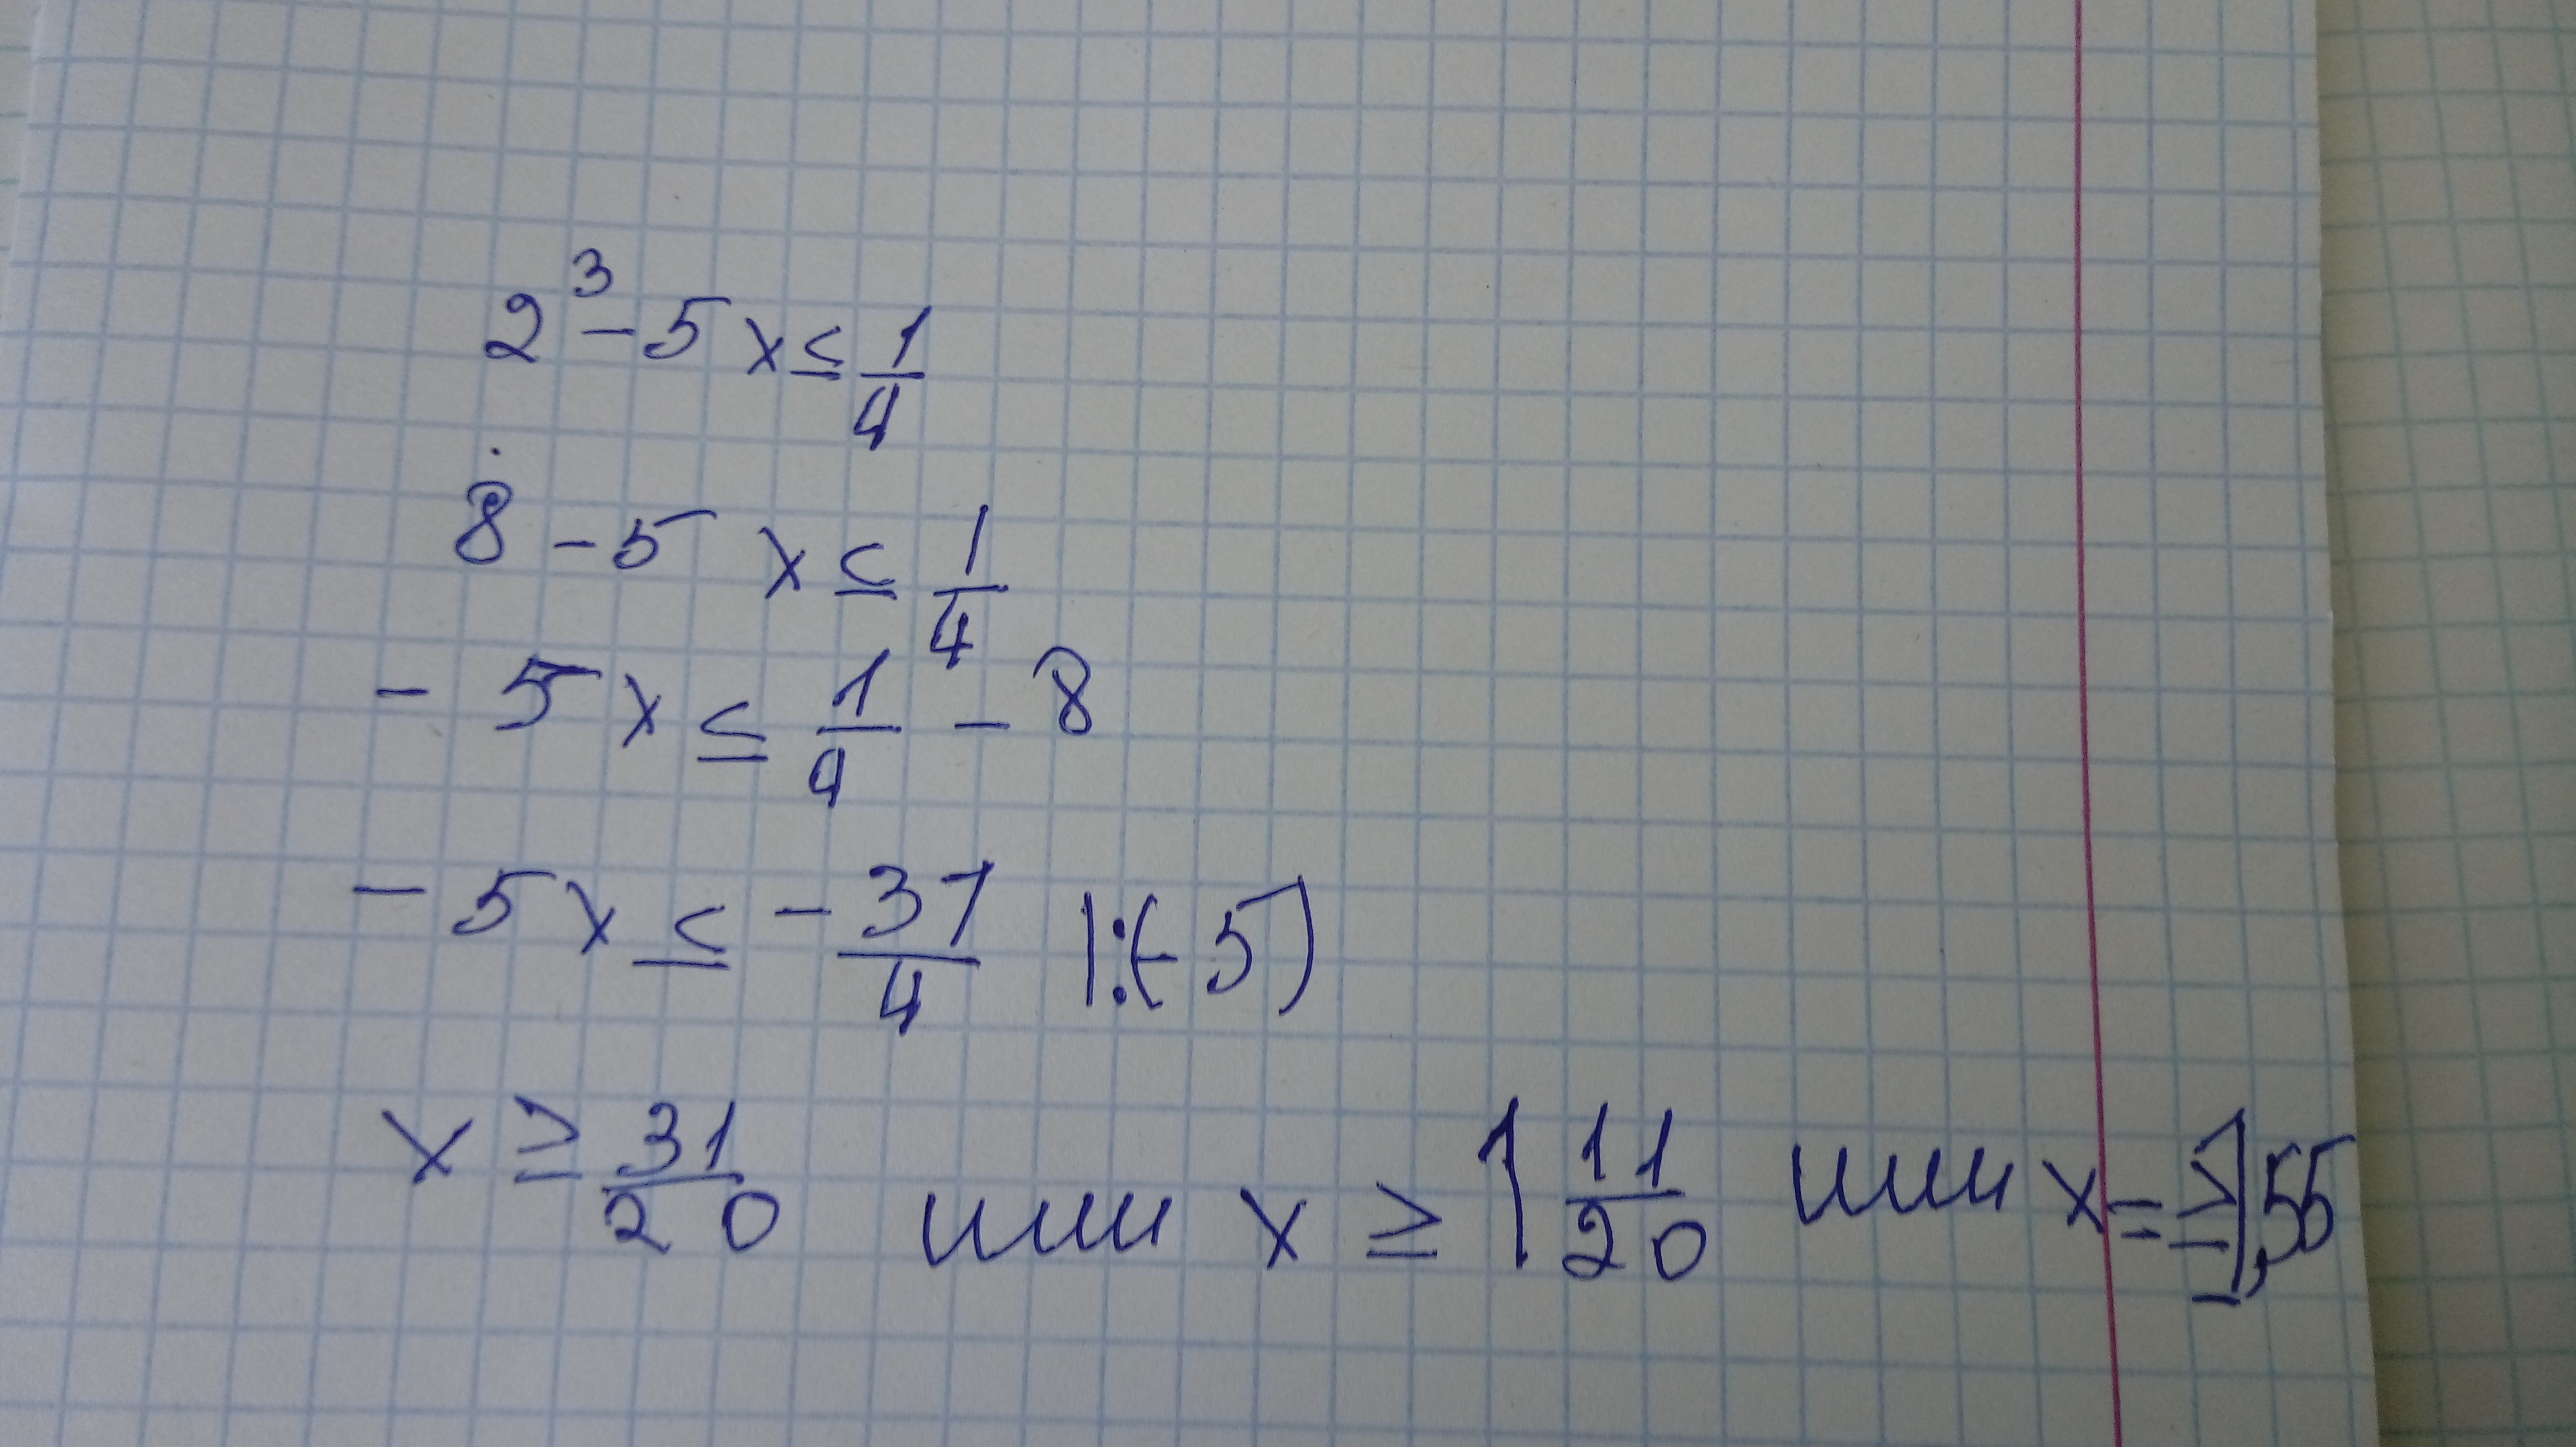 2³ - 5x ≤ 1/4
8 - 5x ≤ 1/4
- 5x ≤ 1/4 - 8
- 5x ≤ - 31/4 |:(-5)
x ≥ 31/20 или x ≥ 1 11/20 или x = ≥ 1,55